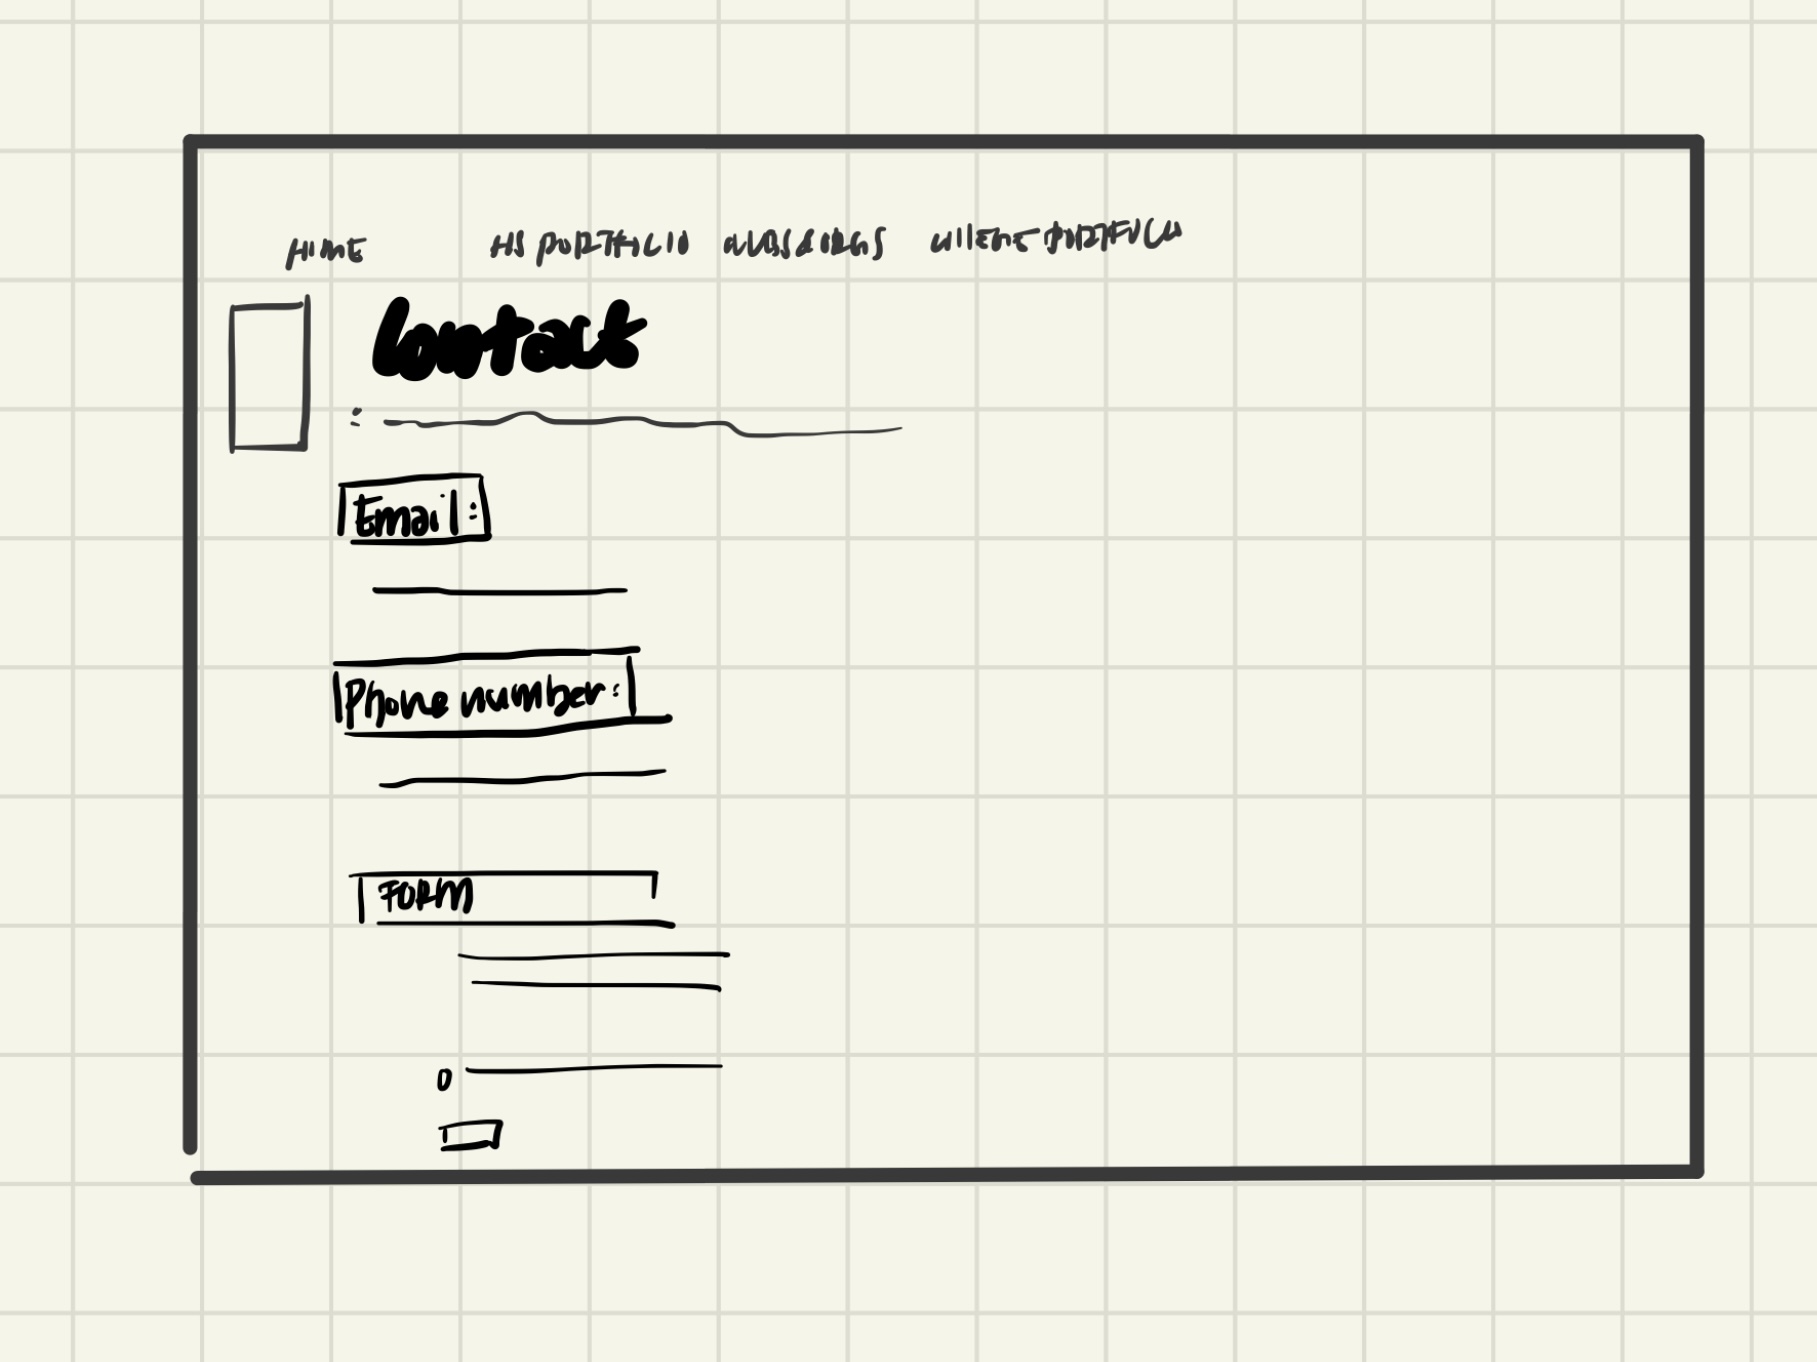 HOME HS PORTFOLIO CLUBS & ORGS COLLEGE PORTFOLIO
Contact
:
Email:
Phone number:
FORM